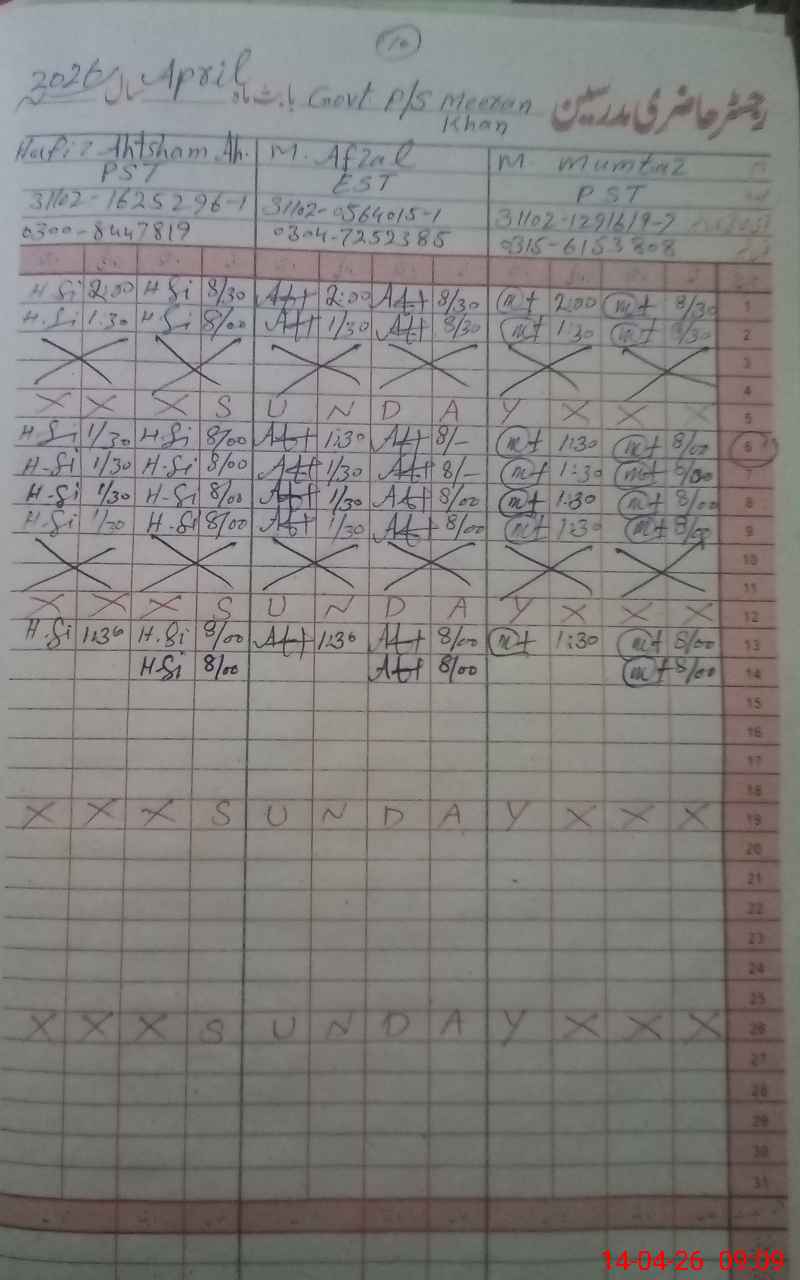 10
2026 سال April بابت ماہ Govt P/S Meeran Khan رجسٹر حاضری مدرسین
Hafiz Ahtsham Ah. M. Afzal M. Mumtaz
PST EST PST
31102-1625296-1 31102-0564015-1 31102-1291619-7
0300-8447819 0304-7252385 0315-6153808
H.Gi 2:00 H Gi 8/30 Aft 2:00 Aft 8/30 mt 2:00 mt 8/30 1
H.Gi 1:30 H Gi 8/00 Aft 1/30 Aft 8/30 mt 1:30 mt 8/30 2
3
4
X X X S U N D A Y X X X 5
H Gi 1/30 H.Gi 8/00 Aft 1:30 Aft 8/- mt 1:30 mt 8/00 6
H-Gi 1/30 H.Gi 8/00 Aft 1/30 Aft 8/- mt 1:30 mt 8/00 7
H-Gi 1/30 H-Gi 8/00 Aft 1/30 Aft 8/00 mt 1:30 mt 8/00 8
H-Gi 1/30 H-Gi 8/00 Aft 1/30 Aft 8/00 mt 1:30 mt 8/00 9
10
11
X X X S U N D A Y X X X 12
H.Gi 1:30 H.Gi 8/00 Aft 1:30 Aft 8/00 mt 1:30 mt 8/00 13
H-Gi 8/00 Aft 8/00 mt 8/00 14
15
16
17
18
X X X S U N D A Y X X X 19
20
21
22
23
24
25
X X X S U N D A Y X X X 26
27
28
29
30
31
14-04-26 09:09